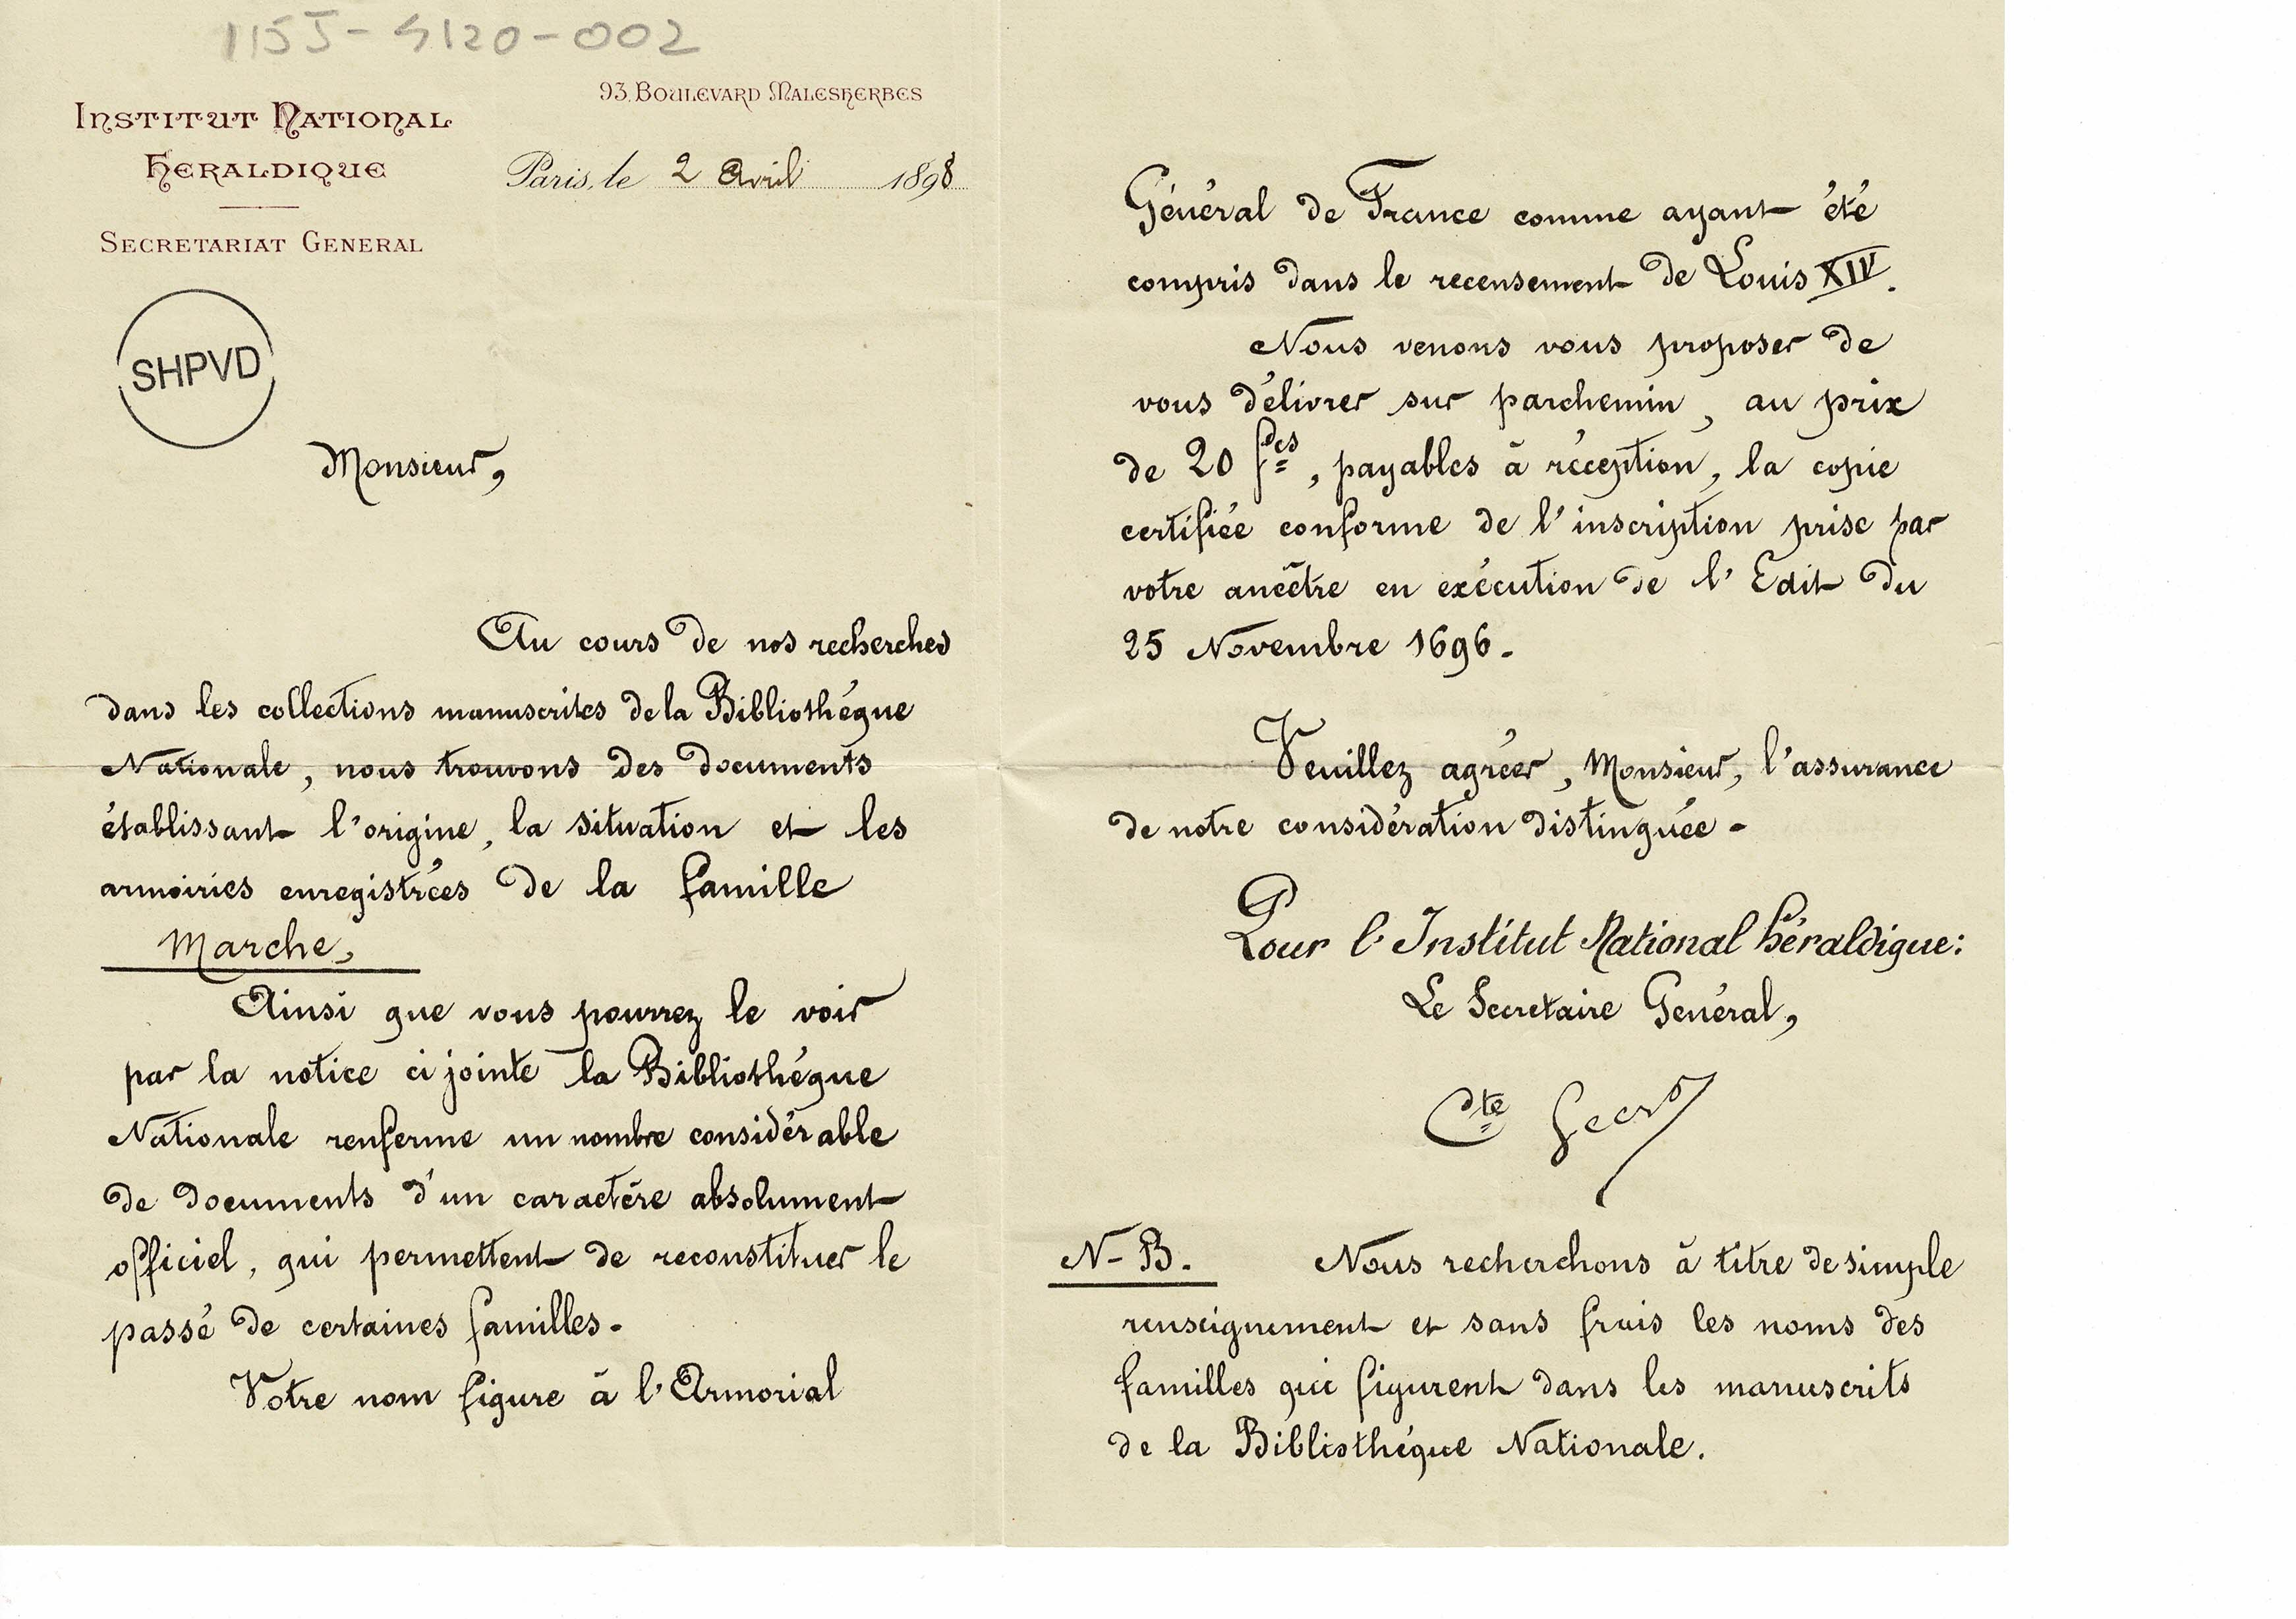 115J-S120-002
INSTITUT NATIONAL
HERALDIQUE
SECRETARIAT GENERAL
93, BOULEVARD MALESHERBES
Paris, le 2 Avril 1898
SHPVD
Monsieur,
Au cours de nos recherches
dans les collections manuscrites de la Bibliothéque
Nationale, nous trouvons des documents
établissant l'origine, la situation et les
armoiries enregistrées de la famille
Marche,
Ainsi que vous pourrez le voir
par la notice ci jointe la Bibliothéque
Nationale renferme un nombre considérable
de documents d'un caractére absolument
officiel, qui permettent de reconstituer le
passé de certaines familles.
Votre nom figure à l'Armorial
Général de France comme ayant été
compris dans le recensement de Louis XIV.
Nous venons vous proposer de
vous délivrer sur parchemin, au prix
de 20 fcs, payables à réception, la copie
certifiée conforme de l'inscription prise par
votre ancêtre en exécution de l'Edit du
25 Novembre 1696.
Veuillez agréer, Monsieur, l'assurance
de notre considération distinguée.
Pour l'Institut National héraldique:
Le Secretaire Général,
Cte
N-B. Nous recherchons à titre de simple
renseignement et sans frais les noms des
familles qui figurent dans les manuscrits
de la Bibliothéque Nationale.